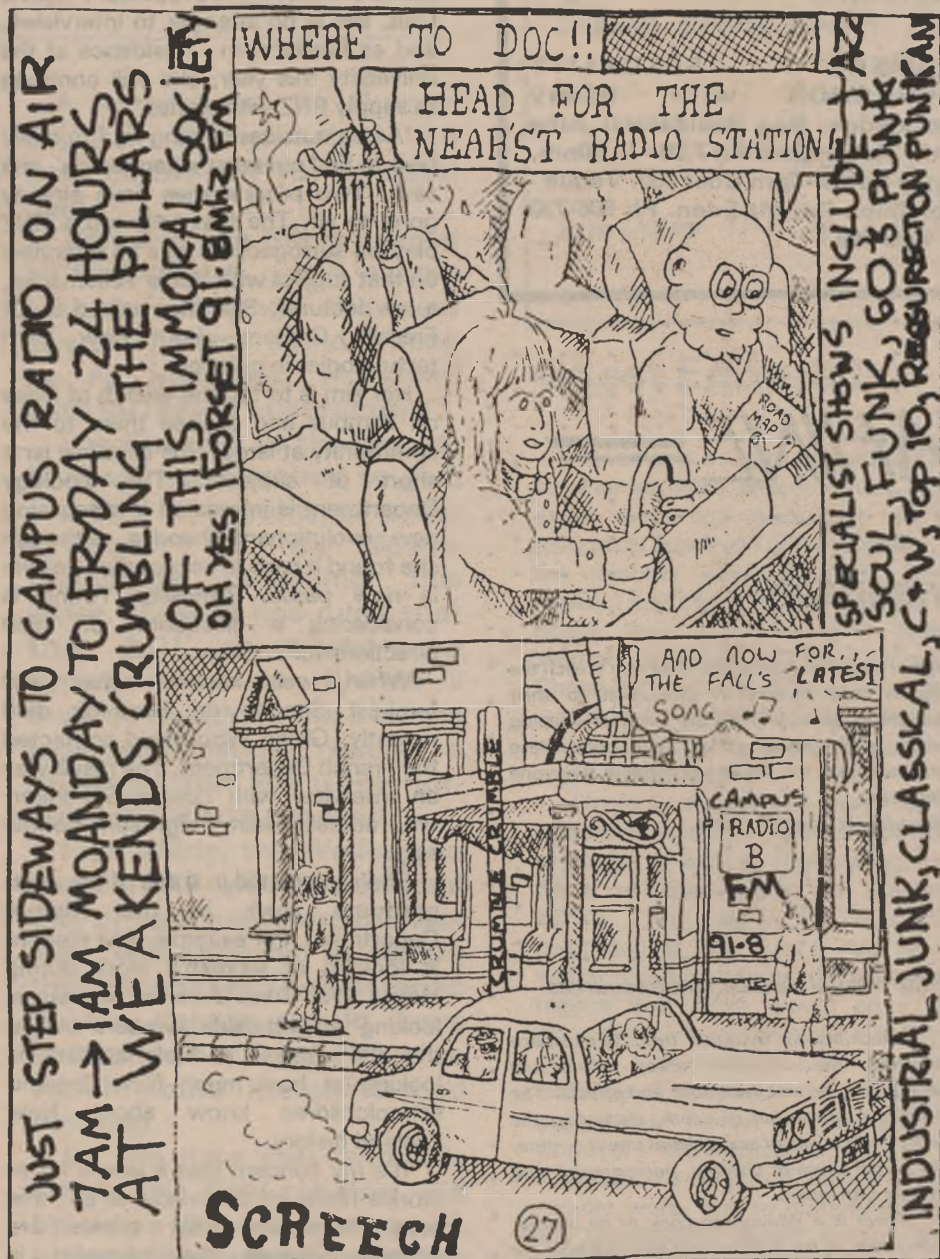 JUST STEP SIDEWAYS TO CAMPUS RADIO ON AIR
7AM → 1AM MOANDAY TO FRYDAY 24 HOURS
AT WEAKENDS CRUMBLING THE PILLARS
OF THIS IMMORAL SOCIETY
OH YES FORGET 91·8Mhz FM
WHERE TO DOC!!
HEAD FOR THE
NEAR'ST RADIO STATION!
ROAD
MAP
SPECIALIST SHOWS INCLUDE JAZZ
SOUL, FUNK, 60'S PUNK
INDUSTRIAL JUNK, CLASSKAL, C&W, TOP 10, RESSURECTION PUNK
AND NOW FOR...
THE FALL'S LATEST
SONG
CRUMBLE CRUMBLE
CAMPUS
RADIO
B
FM
91·8
SCREECH
27